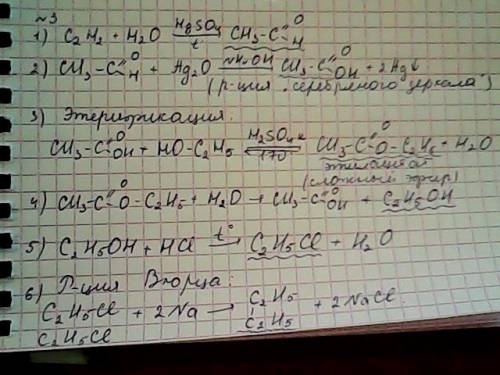 №3
1) C₂H₂ + H₂O HgSO₄ t CH₃-C O H
2) CH₃-C O H + Ag₂O NH₄OH CH₃-C O OH + 2Ag↓
(р-ция „серебряного зеркала")
3) Этерификация:
CH₃-C O OH + HO-C₂H₅ H₂SO₄ к 170° CH₃-C O O-C₂H₅ + H₂O
этилацетат
(сложный эфир)
4) CH₃-C O O-C₂H₅ + H₂O → CH₃-C O OH + C₂H₅OH
5) C₂H₅OH + HCl t° → C₂H₅Cl + H₂O
6) Р-ция Вюрца:
C₂H₅Cl + 2Na → C₂H₅ + 2NaCl.
C₂H₅Cl C₂H₅